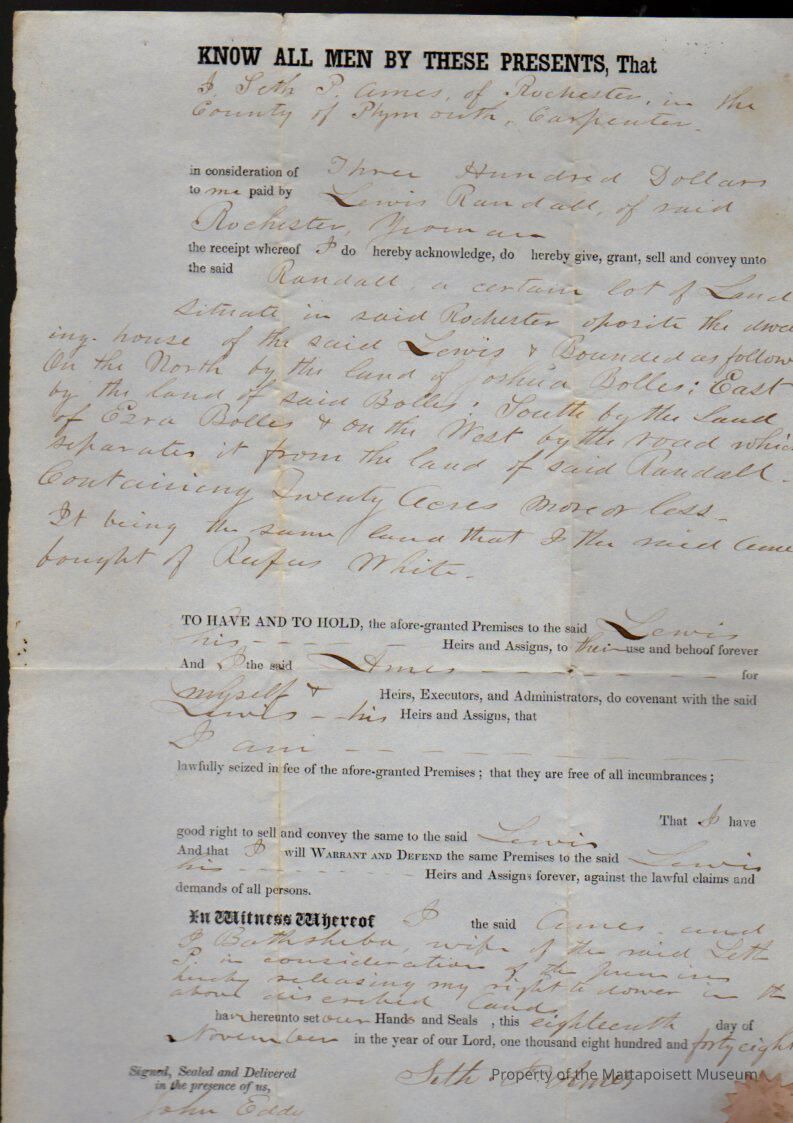 KNOW ALL MEN BY THESE PRESENTS, That
I Seth P. Ames, of Rochester, in the
County of Plymouth, Carpenter.
in consideration of Three Hundred Dollars
to me paid by Lewis Randall, of said
Rochester, Yeoman
the receipt whereof I do hereby acknowledge, do hereby give, grant, sell and convey unto
the said Randall, a certain lot of Land
situate in said Rochester oposite the dwel
ing house of the said Lewis & Bounded as follow
On the North by the land of Joshua Bolles; East
by the land of said Bolles; South by the land
of Ezra Bolles & on the West by the road whic
separates it from the land of said Randall.
Containing Twenty Acres more or less.
It being the same land that I the said Ame
bought of Rufus White.
TO HAVE AND TO HOLD, the afore-granted Premises to the said Lewis
his Heirs and Assigns, to their use and behoof forever
And I the said Ames for
myself & Heirs, Executors, and Administrators, do covenant with the said
Lewis - his Heirs and Assigns, that
I am
lawfully seized in fee of the afore-granted Premises; that they are free of all incumbrances;
That I have
good right to sell and convey the same to the said Lewis
And that I will WARRANT AND DEFEND the same Premises to the said Lewis
his Heirs and Assigns forever, against the lawful claims and
demands of all persons.
In Witness Whereof I the said Ames and
I Bathsheba, wife of the said Seth
P. in consideration of the premises
hereby releasing my right to dower in th
above discribed Land
have hereunto set our Hands and Seals, this eighteenth day of
November in the year of our Lord, one thousand eight hundred and forty eight
Signed, Sealed and Delivered
in the presence of us,
Seth P. Ames
John Eddy
Property of the Mattapoisett Museum